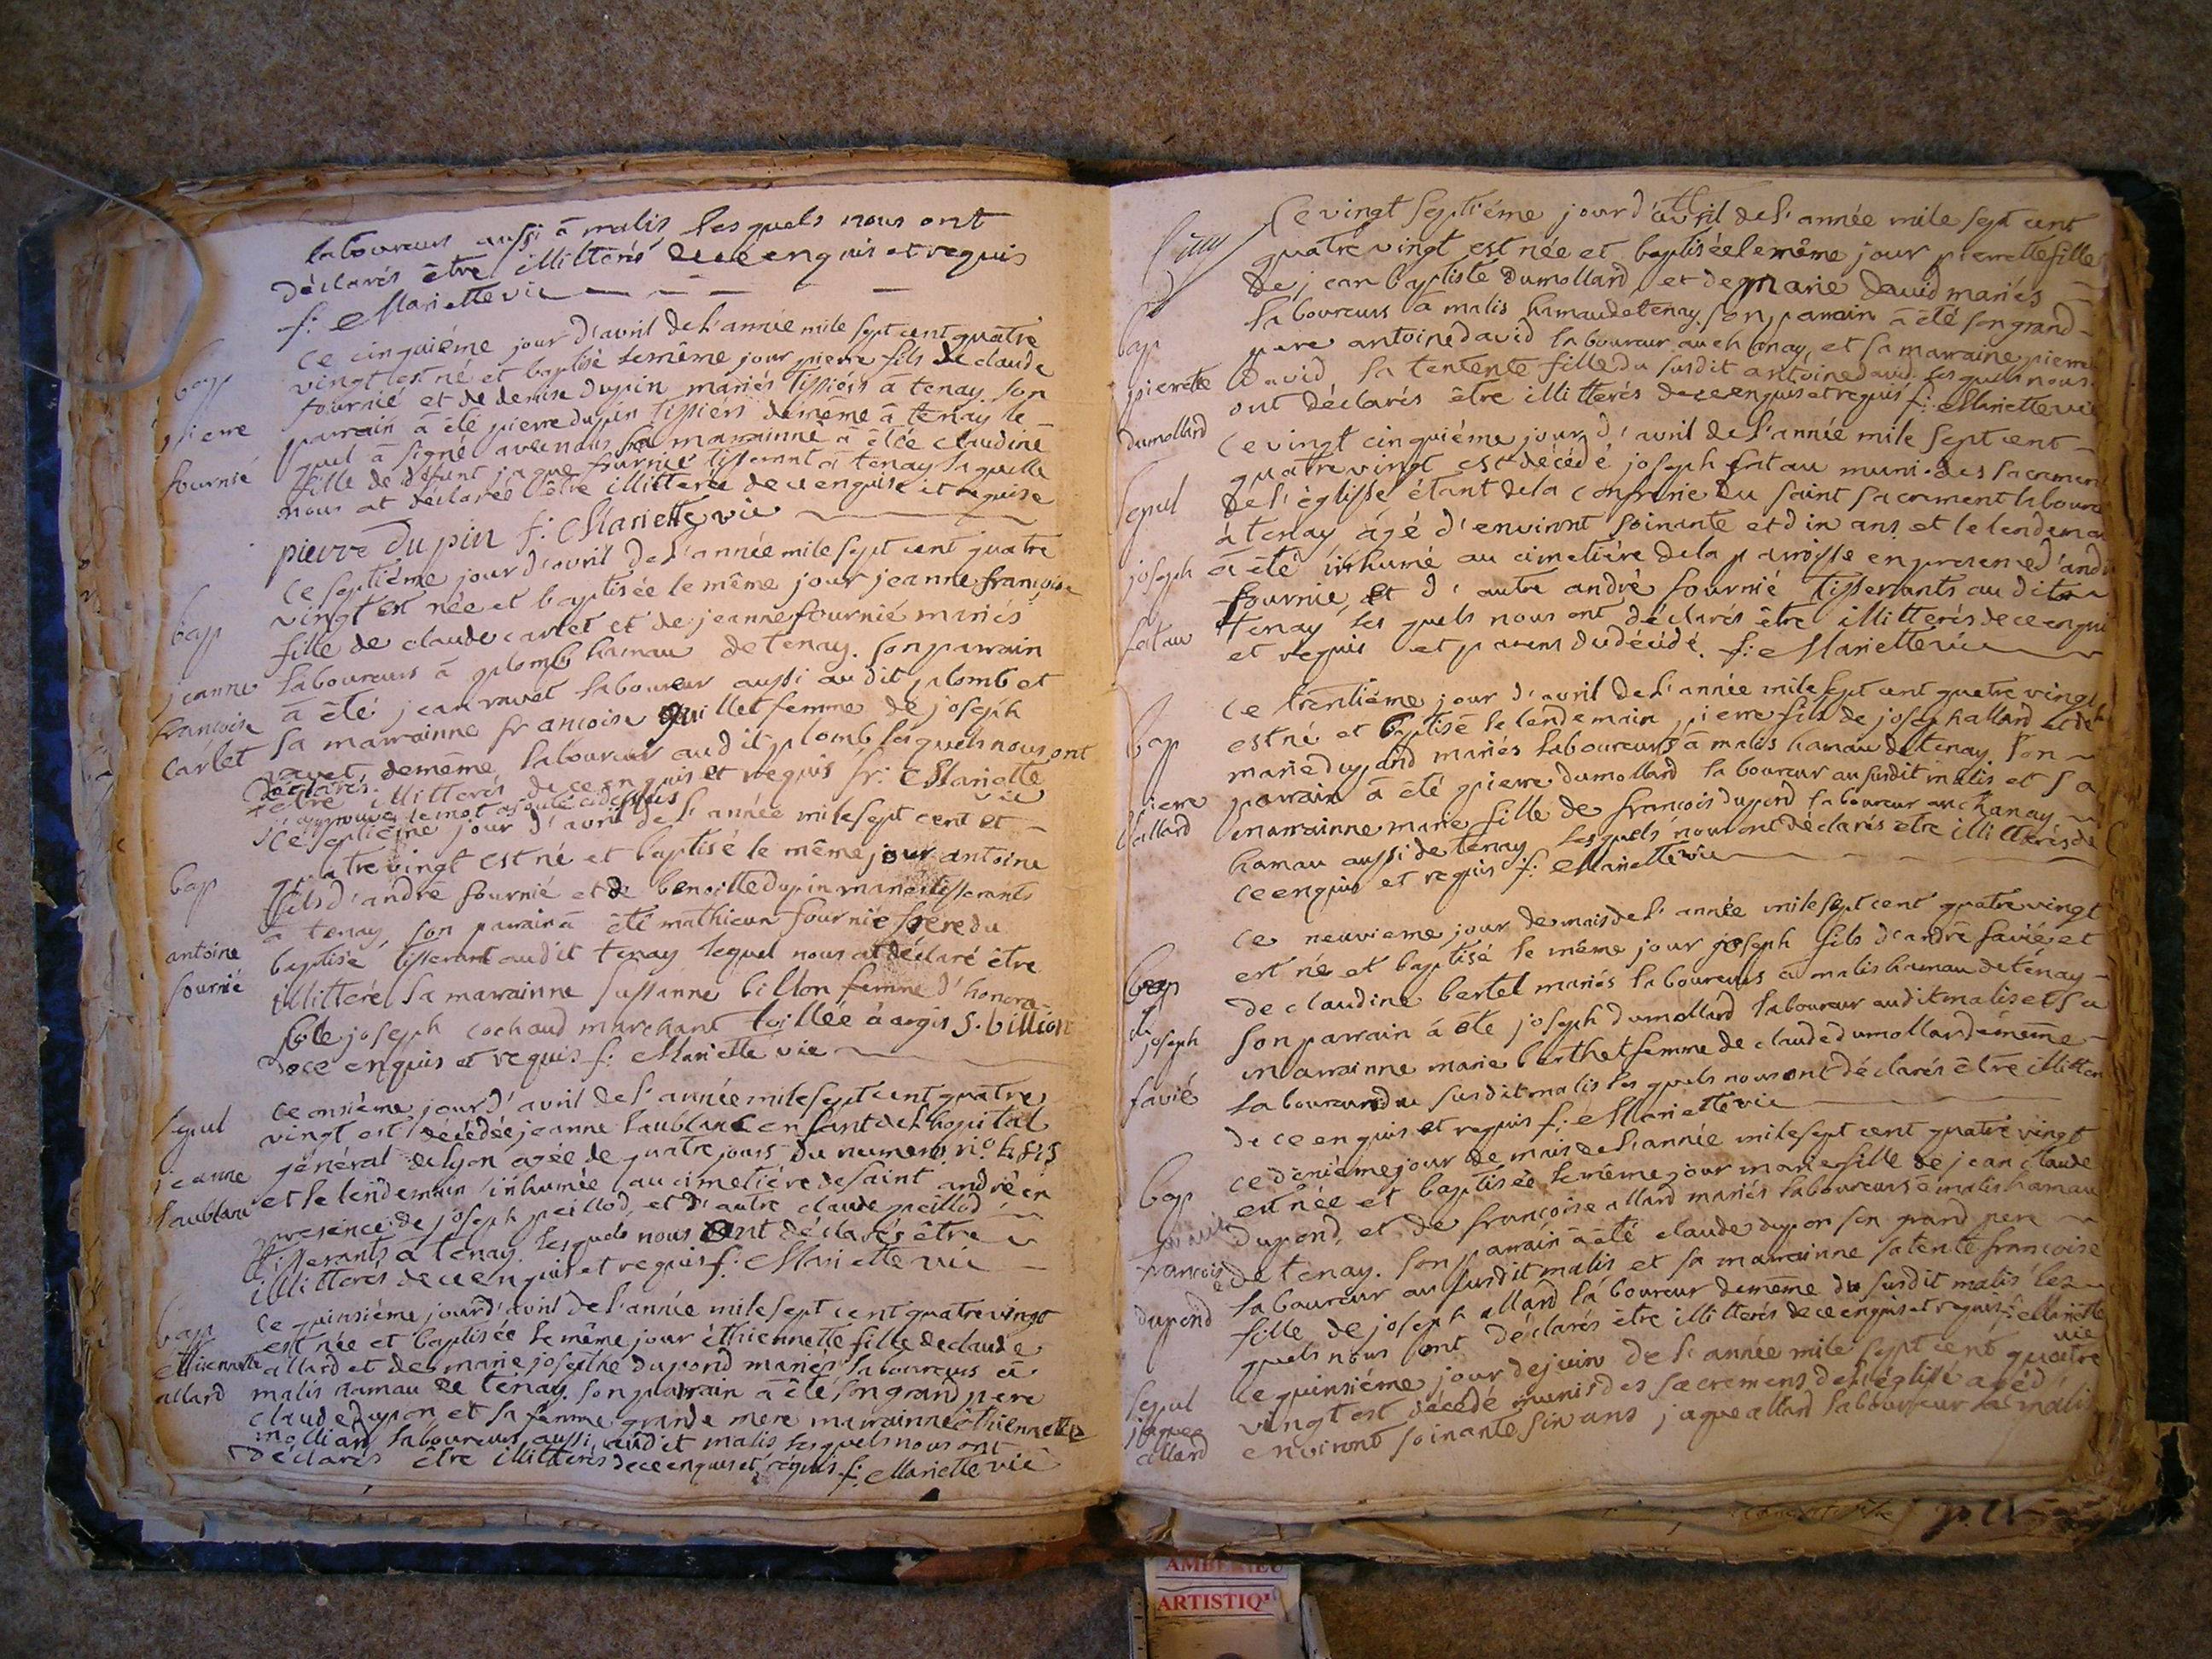 laboureurs aussi à malis lesquels nous ont
déclarés être illitterés de ce enquis et requis
f: Mariette vic
Ce cinquième jour d'avril de l'année mile sept cent quatre
bap
vingt est né et baptisé le même jour pierre fils de claude
fournié et de denise dupin mariés tissiérs à tenay son
pierre
parrain à été pierre dupin tissiers de même à tenay le
quel à signé avec nous sa marrainne à êtée claudine
fournié
fille de défunt jaque fournié tisserant à tenay laquelle
nous at déclarée être illitterée de ce enquise et requise
pierre dupin f: Mariette vic
Ce septiéme jour d'avril de l'année mile sept cent quatre
vingt est née et baptisée le même jour jeanne francoise
bap
fille de claude carlet et de jeanne fournié mariés
jeanne
laboureurs à plomb hamau de tenay. son parrain
francoise
à été jean ravet laboureur aussi au dit plomb et
carlet
sa marrainne francoise guillet femme de joseph
ravet, de même laboureur au dit plomb lesquels nous ont
déclarés
être illitterés de ce enquis et requis fr: Mariette
vic
j'approuve le mot ajouté ci dessus
Ce septième jour d'avril de l'année mile sept cent et
quatre vingt est né et baptisé le même jour antoine
bap
fils d'andré fournié et de benoitte dupin mariés tisserants
à tenay son parrain à été mathieun fournié frere du
antoine
baptisé tisserant au dit tenay lequel nous at déclaré être
fournié
illitteré sa marrainne sussanne billion femme d'honora-
ble joseph cochaud marchant toillée à argis S. billion
de ce enquis et requis f: Mariette vic
Ce onsième jour d'avril de l'année mile sept cent quatre
sepul
vingt est décédée jeanne laublanc enfant de l'hopital
jeanne
général de lyon agée de quatre jours du numero n°
laublanc
et le lendemain inhumée au cimetiére de saint andré en
presence de joseph peillod, et d'autre claude peillod
tisserants à tenay. lesquels nous ont déclarés être
illitterés de ce enquis et requis f: Mariette vic
Ce quinsiéme jour d'avril de l'année mile sept cent quatre vingt
bap
est née et baptisée le même jour éthiennette fille de claude
éthiennette
allard et de marie josephe dupond mariés laboureurs à
allard
malis hamau de tenay. son parrain à êté son grand pere
claude dupon et sa femme grande mere marrainne éthiennette
mollian laboureurs aussi au dit malis lesquels nous ont
déclarés être illitterés de ce enquis et requis f: Mariette vic
Ce vingt septiéme jour d'avril de l'année mile sept cent
quatre vingt est née et baptisée le même jour pierrette fille
de jean baptiste dumollard et de marie david mariés
laboureurs à malis hamau de tenay. son parrain à êté son grand
bap
pere antoine david laboureur au chanay, et sa marraine pierrette
pierrette
david sa tentente fille du susdit antoine david lesquels nous
ont déclarés être illitterés de ce enquis et requis f: Mariette vic
dumollard
Ce vingt cinquiéme jour d'avril de l'année mile sept cent
quatre vingt est décédé joseph fatau muni des sacremen
sepul
de l'églisse étant de la confrerie du saint sacrement laboure
à tenay âgé d'environt soinante et din ans et le lendema
joseph
à êté inhumé au cimetiére de la parroisse en presence d'andr
fournié, et d'autre andré fournié tisserants au dit
fatau
tenay lesquels nous ont déclarés être illitterés de ce enqui
et requis et parens du décédé. f: Mariette vic
Ce trentiéme jour d'avril de l'année mile sept cent quatre vingt
bap
est né et baptisé le lendemain pierre fils de joseph allard et de
marie dupond mariés laboureurs à malis hamau de tenay. son
pierre
parrain à été pierre dumollard laboureur au susdit malis et sa
allard
marrainne marie fille de francois dupond laboureur au chanay
hamau aussi de tenay lesquels nous ont déclarés etre illitterés de
ce enquis et requis f: Mariette vic
Ce neuvieme jour de mais de l'année mile sept cent quatre vingt
est né et baptisé le même jour joseph fils d'andré favié et
bap
de claudine bertet mariés laboureurs à malis hamau de tenay
joseph
son parrain à êté joseph dumollard laboureur au dit malis et sa
marrainne marie berthet femme de claude dumollard de même
favié
laboureur du susdit malis lesquels nous ont déclarés être illitter
de ce enquis et requis f: Mariette vic
Ce diniéme jour de mais de l'année mile sept cent quatre vingt
bap
est née et baptisée le même jour marie fille de jean claude
dupond, et de francoise allard mariés laboureurs à malis hamau
francoise
de tenay. son parrain à êté claude dupon son grand pere
laboureur au susdit malis et sa marrainne sa tente francoise
dupond
fille de joseph allard laboureur de même du susdit malis les
quels nous ont déclarés être illitterés de ce enquis et requis f: Mariette
vic
Ce quinsiéme jour de juin de l'année mile sept cent quatre
sepul
vingt est décédé munis des sacremens de l'églisse agé d'
jaque
environt soinante sin ans jaque allard laboureur à malis
allard
AMBERIEU
ARTISTIQ